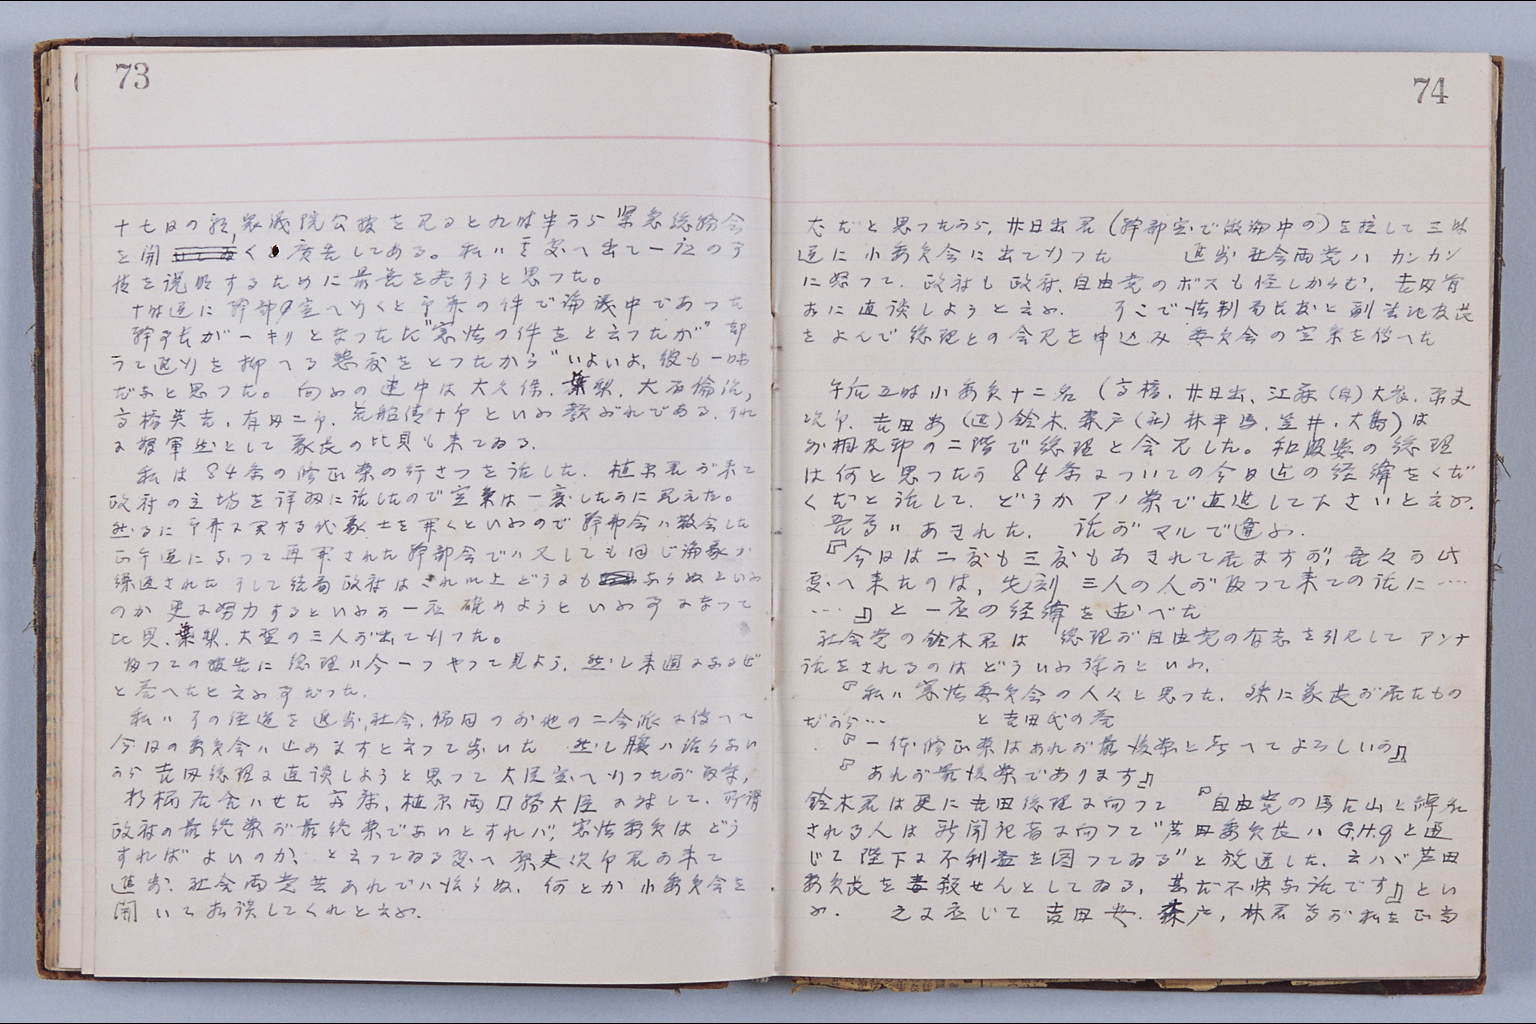 73
十七日の朝、衆議院公報を見ると九時半から緊急総務会
を開く広告してある。私ハ其処へ出て一応の事
情を説明するために最善を尽さうと思つた。
十時過に幹部室へゆくと予算の件で論議中であつた
幹事長が一キリとなつた と"憲法の件を と云つたが"
"いよいよ、彼も一味
だなと思つた。向ふの連中は大久保、葉梨、大石倫治、
高橋英吉、有田二郎、荒船清十郎といふ顔ぶれである、それ
に援軍然として議長の比貝も来てゐる。
私は84条の修正案の行きさつを話した、植原君が来て
政府の立場を詳細に話したので空気は一変したかに見えた。
然るに予算に関する代議士会を開くといふので幹部会ハ散会した
正午過になつて再開された幹部会でハ又しても同じ論議が
繰返された そして結局政府はこれ以上どうにもならぬといふ
のか 更に努力するといふのか一応確めようといふ事になつて
比貝、葉梨、大野の三人が出てゆつた。
帰つての報告に総理ハ今一つやつて見よう、然し来週になるぜ
と答へたと云ふ事だつた。
私ハその経過を進歩、社会、協同のお他の二会派に伝へて
今日の委員会ハ止めますと云つておいた 然し腹ハ治らない
から吉田総理に直談しようと思つて大臣室へゆつたが留守、
折柄居合ハせた斉藤、植原両国務大臣に対して、所謂
政府の最終案が最終案でないとすれバ、憲法委員はどう
すればよいのか、と云つてゐる処へ原夫次郎君が来て
進歩、社会両党共あれでハ治らぬ、何とか小委員会を
開いて相談してくれと云ふ。
74
だと思つたから、廿日出君(幹部室で傍聴中の)を拉して三時
過に小委員会に出てゆつた 進歩社会両党ハカンカン
に怒つて、政府も政府、自由党のボスも怪しからむ、吉田首
相に直談しようと云ふ そこで法制局長官と副書記官長
をよんで総理との会見を申込み 委員会の空気を伝へた
午后五時小委員十二名(高橋、廿日出、江藤(自)犬養、原夫
次郎、吉田安(進)鈴木、森戸(社)林平馬、笠井、大島)は
外相官邸の二階で総理と会見した。和服姿の総理
は何と思つたか84条についての今日迄の経緯をくだ
くだと話して、どうかアノ案で直進して下さいと云ふ。
吾等ハあきれた、話がマルで違ふ
『今日は二度も三度もあきれて居ますが、吾々の此
処へ来たのは、先刻三人の人が帰つて来ての話に……
……』と一応の経緯を述べた
社会党の鈴木君は 総理が自由党の有志を引見して アンナ
話をされるのはどういふ譯かといふ、
『私ハ憲法委員会の人々と思つた、殊に議長が居たもの
だから… と吉田氏の答
『一体修正案はあれが最後案と考へてよろしいか』
『あれが最後案であります』
鈴木君は更に吉田総理に向つて 『自由党の馬占山と綽名
される人は新聞記者に向つて"芦田委員長ハG.H.Qと通
じて陛下に不利益を図つてゐる"と放送した、云ハゞ芦田
委員長を毒殺せんとしてゐる、甚だ不快な話です』とい
ふ。 之に応じて吉田安、森戸、林君等が私を正当